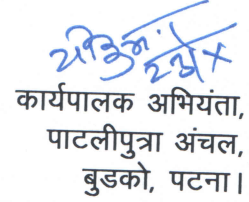 कार्यपालक अभियंता,
पाटलीपुत्रा अंचल,
बुडको, पटना।